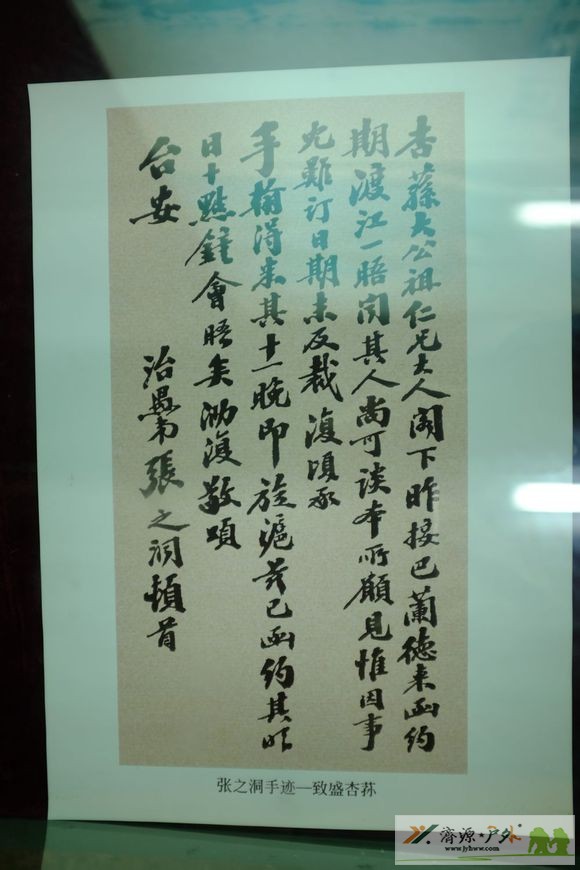 杏蓀大公祖仁兄大人閣下昨接巴蘭德来函約
期渡江一晤聞其人尚可談本所願見惟因事
冗難訂日期未及裁復頃承
手榆得来其十一晚即旋滬茲已函約其明
日十點鐘會晤矣泐復敬頌
台安
治愚弟張之洞頓首
张之洞手迹—致盛杏荪
济源★户外
www.jyhww.com